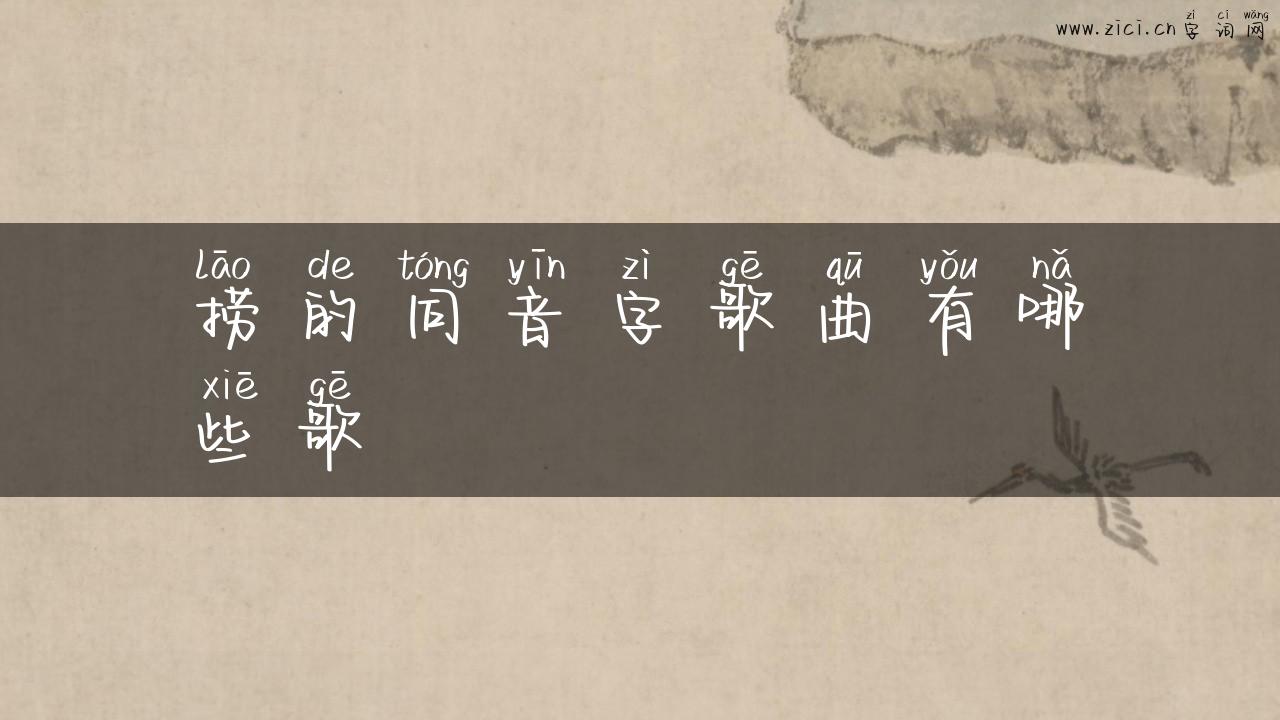 zì cí wǎng
www.zici.cn 字词网
lāo de tóng yīn zì gē qū yǒu nǎ
捞的同音字歌曲有哪
xiē gē
些歌